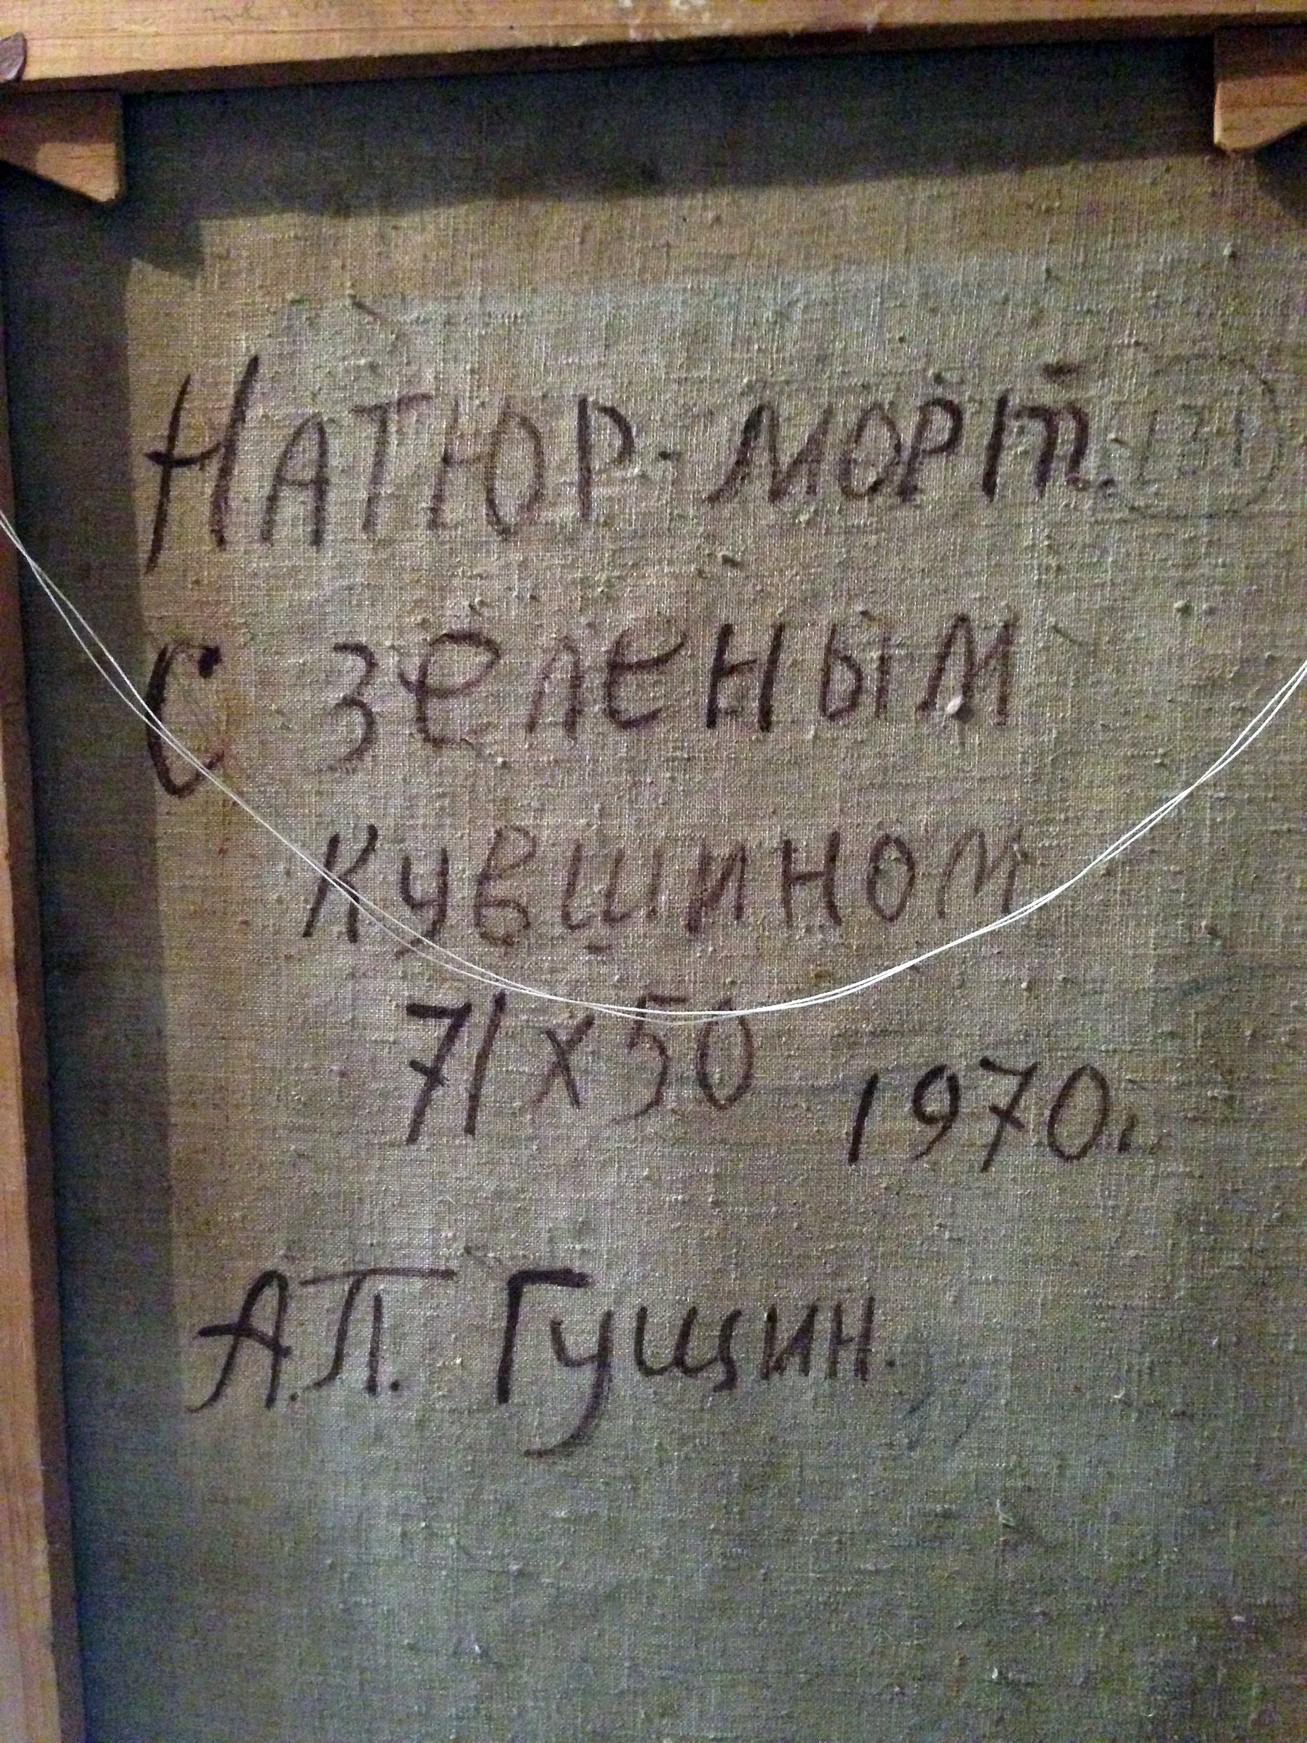 Натюр-морт
с зеленым
кувшином
71х50 1970г.
А.П. Гущин.